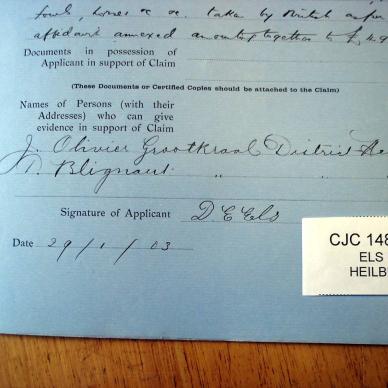 fowls, horses &c &c. taken by British as per
affidavit annexed amounting together to £
Documents in possession of
Applicant in support of Claim
(These Documents or Certified Copies should be attached to the Claim)
Names of Persons (with their
Addresses) who can give
evidence in support of Claim
J. Olivier Grootkraal District He
Blignaut " "
Signature of Applicant D E Els
Date 29/1/03
CJC 148
ELS
HEILB